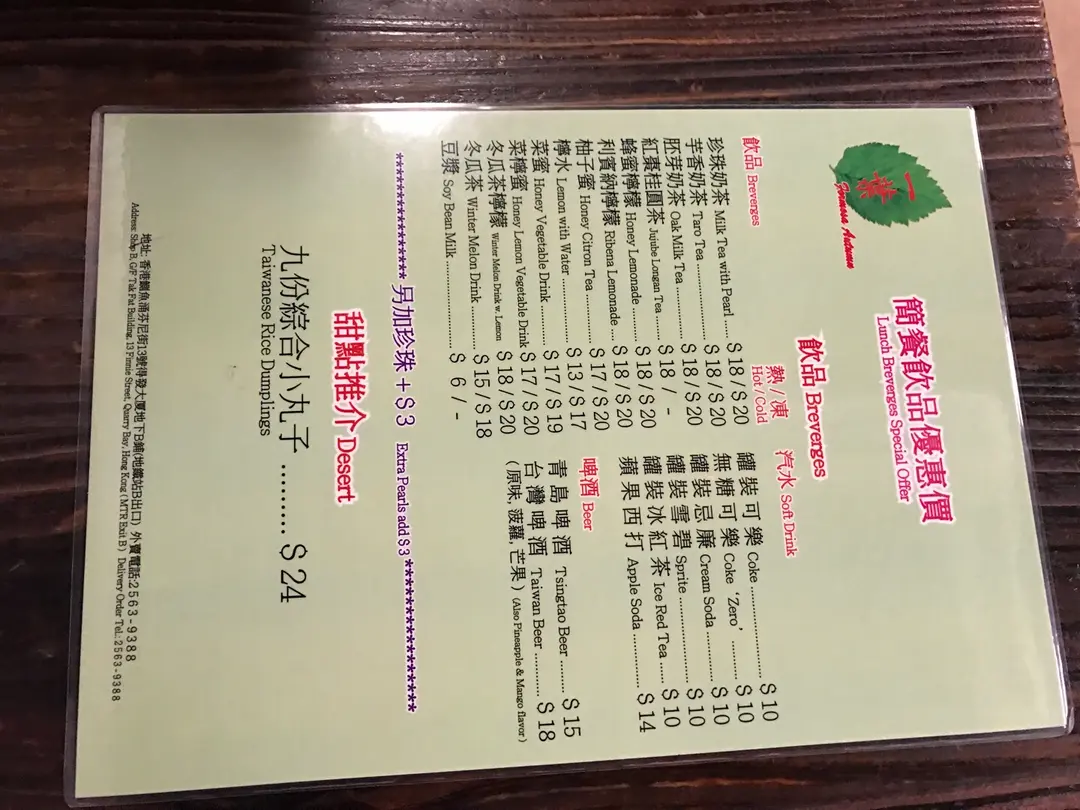 一葉
Formosa Autumn
簡餐飲品優惠價
Lunch Breverges Special Offer
飲品 Breverges
飲品 Breverges
熱/凍
Hot/Cold
珍珠奶茶 Milk Tea with Pearl ..... $ 18 / $ 20
芋香奶茶 Taro Tea .................. $ 18 / $ 20
胚芽奶茶 Oak Milk Tea ........... $ 18 / $ 20
紅棗桂圓茶 Jujube Longan Tea ..... $ 18 / -
蜂蜜檸檬 Honey Lemonade ....... $ 18 / $ 20
利賓納檸檬 Ribena Lemonade .... $ 18 / $ 20
柚子蜜 Honey Citron Tea ........ $ 17 / $ 20
檸水 Lemon with Water ........... $ 13 / $ 17
菜蜜 Honey Vegetable Drink ....... $ 17 / $ 19
菜檸蜜 Honey Lemon Vegetable Drink $ 17 / $ 20
冬瓜茶檸檬 Winter Melon Drink w. Lemon $ 18 / $ 20
冬瓜茶 Winter Melon Drink ....... $ 15 / $ 18
豆漿 Soy Bean Milk ................. $ 6 / -
汽水 Soft Drink
罐裝可樂 Coke ..................... $ 10
無糖可樂 Coke ‘Zero’ ......... $ 10
罐裝忌廉 Cream Soda ........... $ 10
罐裝雪碧 Sprite ................... $ 10
罐裝冰紅茶 Ice Red Tea ....... $ 10
蘋果西打 Apple Soda ............. $ 14
啤酒 Beer
青島啤酒 Tsingtao Beer ....... $ 15
台灣啤酒 Taiwan Beer .......... $ 18
(原味, 菠蘿, 芒果) (Also Pineapple & Mango flavor)
****************** 另加珍珠 + $ 3 Extra Pearls add $ 3 ******************
甜點推介 Desert
九份綜合小丸子 ......... $ 24
Taiwanese Rice Dumplings
地址: 香港鰂魚涌芬尼街13號得發大廈地下B鋪(地鐵站B出口) 外賣電話:2563-9388
Address: Shop B, G/F Tak Fat Building, 13 Finnie Street, Quarry Bay, Hong Kong ( MTR Exit B ) Delivery Order Tel.: 2563-9388